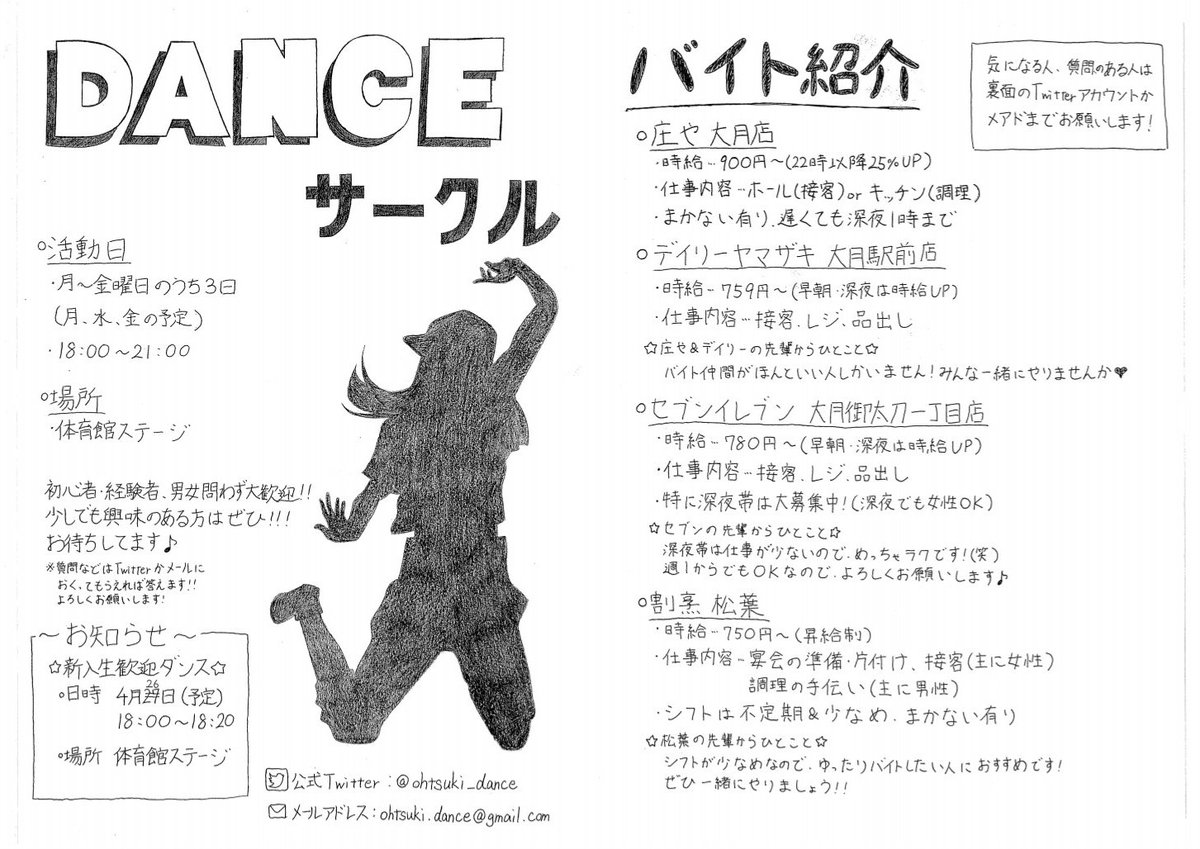 DANCE
サークル
○活動日
・月〜金曜日のうち3日
(月、水、金の予定)
・18:00〜21:00
○場所
・体育館ステージ
初心者・経験者、男女問わず大歓迎!!
少しでも興味のある方はぜひ!!!
お待ちしてます♪
※質問などはTwitterかメールに
おくってもらえれば答えます!!
よろしくお願いします!
〜お知らせ〜
☆新入生歓迎ダンス☆
○日時 4月26日(予定)
18:00〜18:20
○場所 体育館ステージ
公式Twitter:@ohtsuki_dance
メールアドレス:ohtsuki.dance@gmail.com
バイト紹介
気になる人、質問のある人は
裏面のTwitterアカウントか
メアドまでお願いします!
○庄や 大月店
・時給…900円〜(22時以降25%UP)
・仕事内容…ホール(接客)or キッチン(調理)
・まかない有り、遅くても深夜1時まで
○デイリーヤマザキ 大月駅前店
・時給…759円〜(早朝・深夜は時給UP)
・仕事内容…接客、レジ、品出し
☆庄や&デイリーの先輩からひとこと☆
バイト仲間がほんといい人しかいません!みんな一緒にやりませんか♥
○セブンイレブン 大月御太刀一丁目店
・時給…780円〜(早朝・深夜は時給UP)
・仕事内容…接客、レジ、品出し
・特に深夜帯は大募集中!(深夜でも女性OK)
☆セブンの先輩からひとこと☆
深夜帯は仕事が少ないので、めっちゃラクです!(笑)
週1からでもOKなので、よろしくお願いします♪
○割烹 松葉
・時給…750円〜(昇給制)
・仕事内容…宴会の準備・片付け、接客(主に女性)
調理の手伝い(主に男性)
・シフトは不定期&少なめ、まかない有り
☆松葉の先輩からひとこと☆
シフトが少なめなので、ゆったりバイトしたい人におすすめです!
ぜひ一緒にやりましょう!!